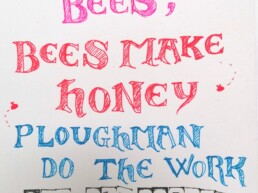 BEES,
BEES MAKE
HONEY
PLOUGHMAN
DO THE WORK